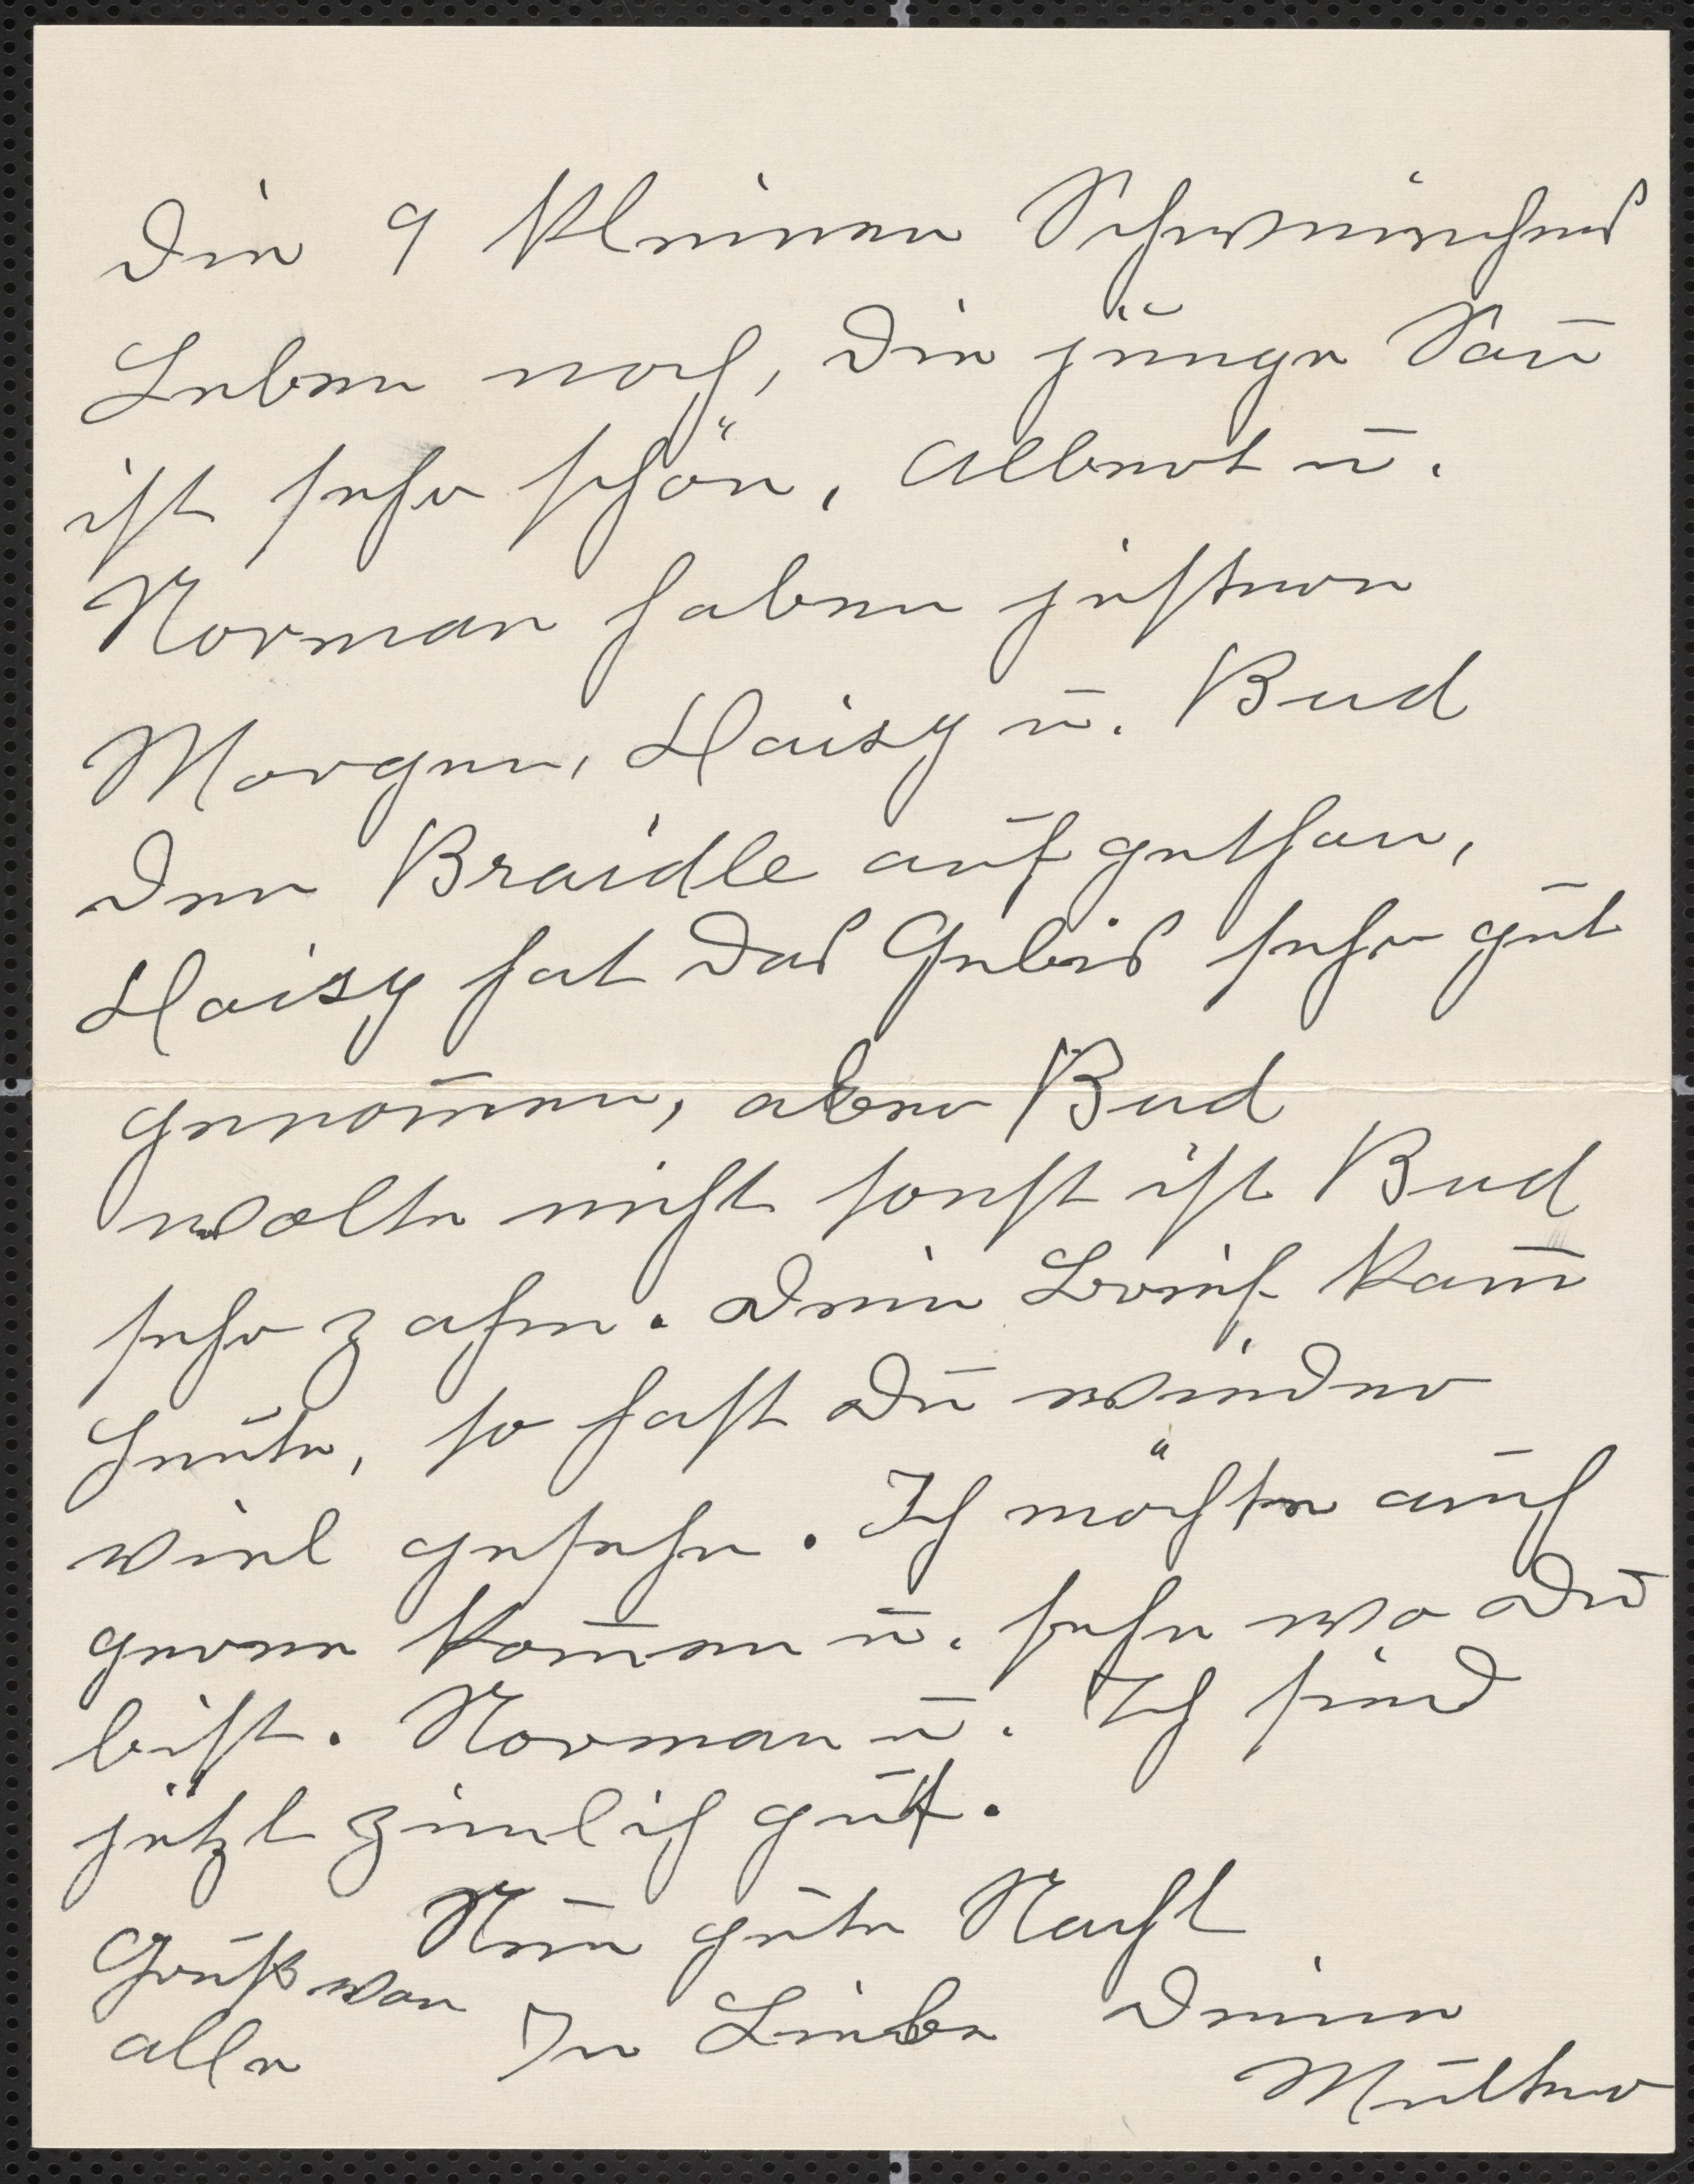 Die 9 kleinen Schweinchens
Leben noch, die junge Sau
ist sehr schön, Albert u.
Norman haben jestern
Morgen, Daisy u. Bud
den Braidle aufgethan,
Daisy hat das Gebis sehr gut
genom̄en, aber Bud
wolte nicht sonst ist Bud
sehr zahm. Dein Brief kam̄
heute, so hast du wieder
viel gesehe. Ich möchte auch
gerne kom̄en u. sehe wo du
bist. Norman u. Ich sind
jetzt zimlich gut.
Nun gute Nacht
Gruß von
alle
In Liebe Deine
Mutter